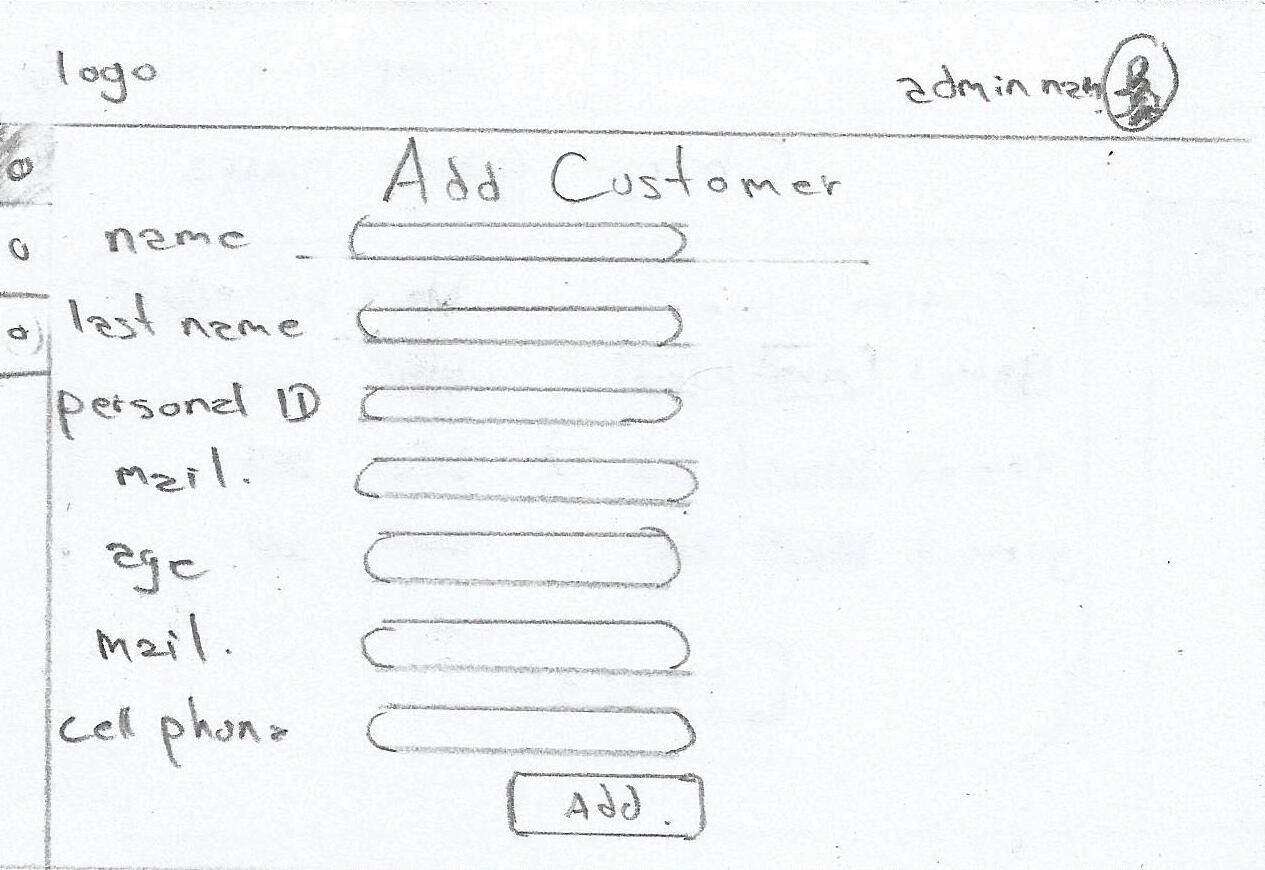 logo
admin nam
Add Customer
name
last name
personal ID
mail.
age
mail.
cell phone
Add.